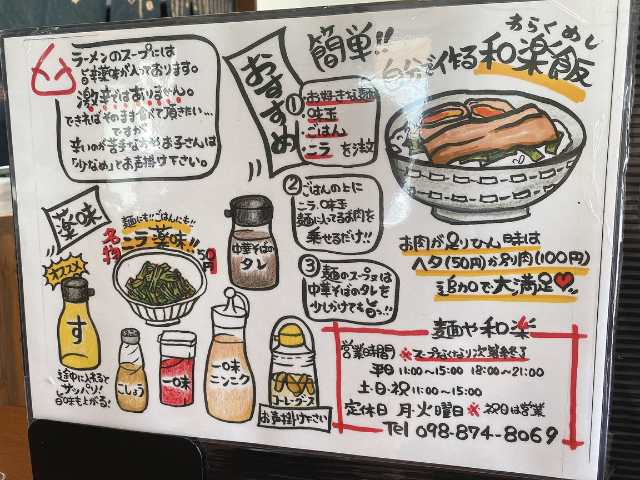 ラーメンのスープには
辛薬味が入っております。
激辛ではありません。
できればそのまま食べて頂きたい…
ですが
辛いのが苦手な方やお子さんは
「少なめ」とお声掛け下さい。
おすすめ
簡単!!
わらくめし
自分で作る和楽飯
①
お好きな麺
・味玉
・ごはん
・ニラ を注文
②
ごはんの上に
ニラ、味玉
麺に入ってるお肉を
乗せるだけ!!
③
麺のスープ又は
中華そばのタレを
少しかけても旨っ!!
お肉が足りひん時は
ヘタ(50円)か別肉(100円)
追加で大満足
薬味
麺にも!!ごはんにも!!
名物
ニラ薬味!!
50円
中華そばの
タレ
オススメ
す
途中に入れると
サッパリ!
旨味も上がる!
こしょう
一味
一味
ニンニク
コーレーグース
お声掛け下さい
麺や和楽
営業時間 ※スープなくなり次第終了
平日 11:00~15:00 18:00~21:00
土・日・祝 11:00~15:00
定休日 月・火曜日 ※祝日は営業
Tel 098-874-8069